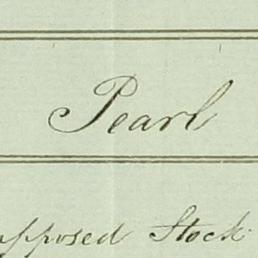 Pearl
upposed Stock